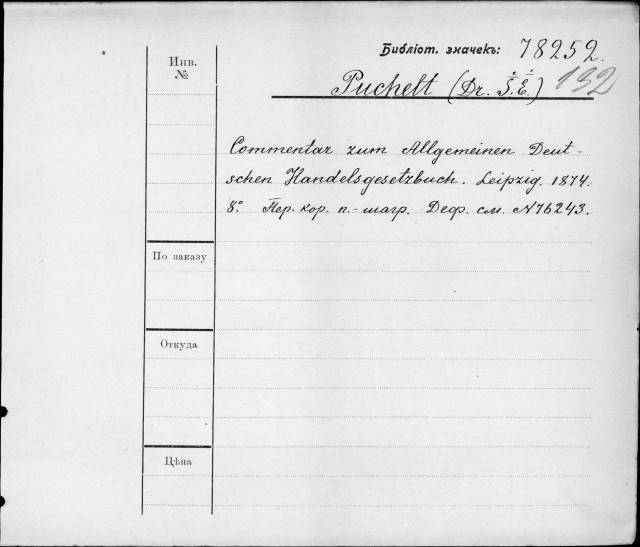 Библіот. значекъ: 78252.
Инв.
№
Puchelt (Dr. S. E.) 132
Commentar zum Allgemeinen Deut-
schen Handelsgesetzbuch. Leipzig. 1874.
8º Пер. кор. п.-шагр. Деф. см. №76243.
По заказу
Откуда
Цѣна